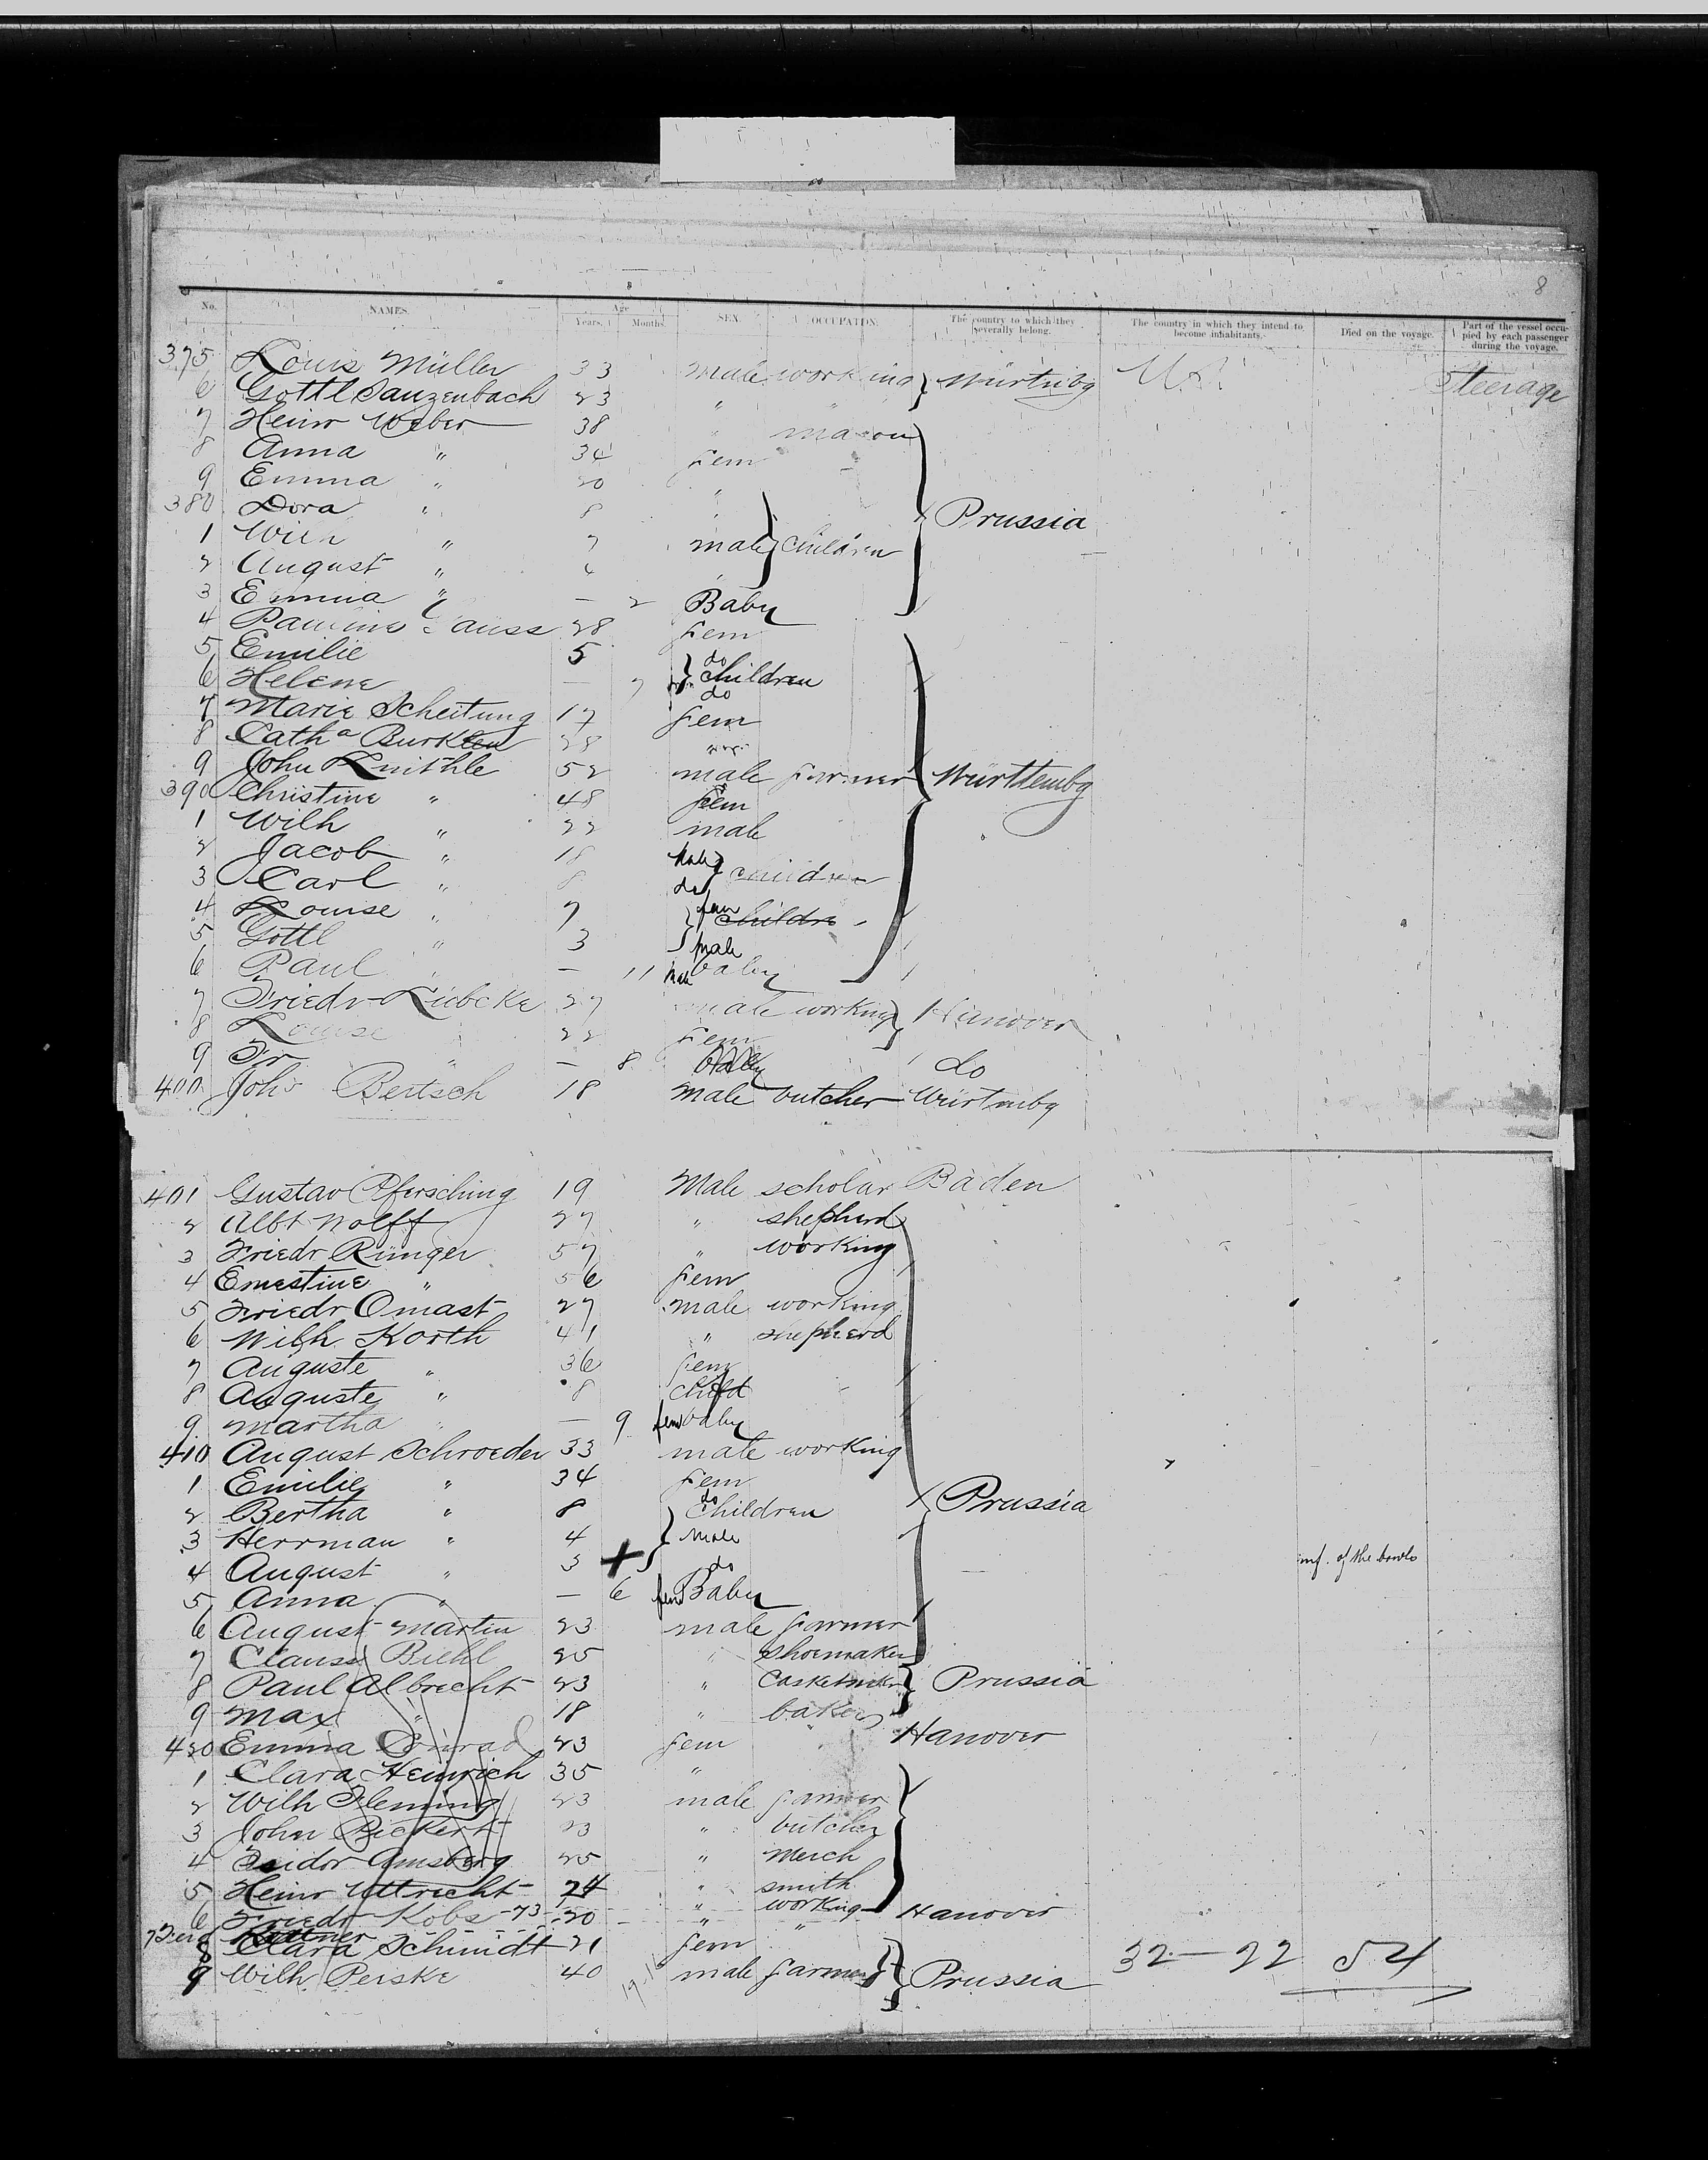 8
No. NAMES. Age Years. Months. SEX. OCCUPATION. The country to which they severally belong. The country in which they intend to become inhabitants. Died on the voyage. Part of the vessel occupied by each passenger during the voyage.
375 Louis Müller 33 male working } Würtnbg U.S. Steerage
6 Gottl Sanzenbach 23 " "
7 Heinr Weber 38 " mason
8 Anna " 34 fem
9 Emma " 20 "
380 Dora " 8 "
1 " 7 male } children Prussia
2 August " "
3 Emma " — 2 Baby
4 Pauline 28 fem
5 Emilie 5 do
6 Helene — 7 } children do
7 Marie Scheitung 17 fem
8 Cath a Burklen 28
9 John Knithle 52 male farmer Württembg
390 Christine " 48 fem
1 Wilh " 22 male
2 Jacob " 18 male
3 Carl " 8 do } children
4 Louise " 7 fem
5 Gottl " 3 } childre male
6 Paul " — 11 male baby
7 Friedr Lübcke 27 male working } Hanover
8 Louise " 22 fem
9 Fr " — 8 baby do
400 Joh Bertsch 18 male butcher Würtmbg
401 Gustav Pfersching 19 Male scholar Baden
2 Albt Wolff 27 " shepherd
3 Friedr Rünger 57 " working
4 Ernestine " 56 fem
5 Friedr Omast 27 male working
6 Wilh Korth 41 " shepherd
7 Auguste " 36 fem
8 Auguste " 8 child
9 Martha " — 9 fem baby
410 August Schroeder 33 male working
1 Emilie " 34 fem
2 Bertha " 8 do children } Prussia
3 Herrman " 4 male
4 August " 3 + do inf. of the bowls
5 Anna " — 6 fem Baby
6 August Martin 23 male farmer
7 Clauss Biehl 25 " shoemaker
8 Paul Albrecht 23 " } Prussia
9 Max " 18 " baker
420 Emma Conrad 23 fem Hanover
1 Clara Heinrich 35 "
2 Wilh Fleming 23 male farmer
3 John Bickert 23 " butcher
4 Isidor Amsberg 25 " Merch
5 Heinr Uttrecht 24 " smith
6 Friedr Kobs 73 20 " working Hanover
7 Kettner "
8 Clara Schmidt 21 fem
9 Wilh Perske 40 male farmer } Prussia 32 — 22 54